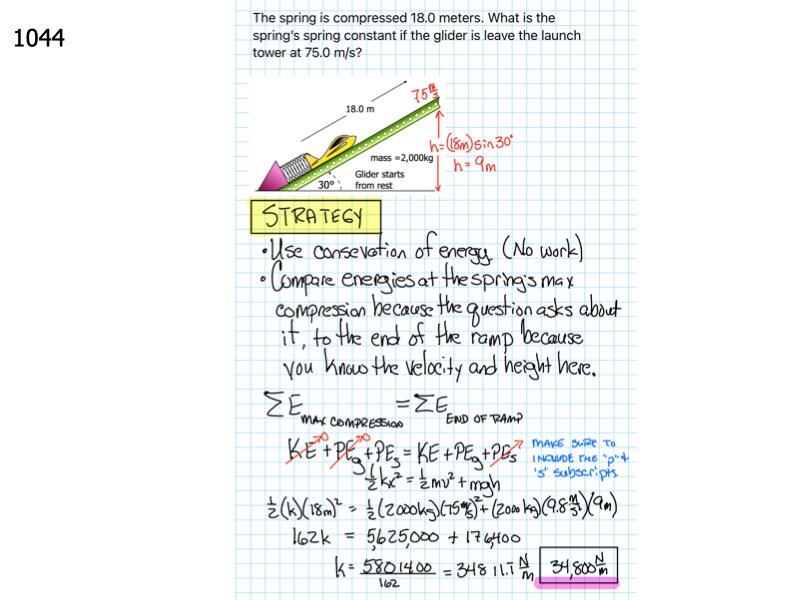 1044
The spring is compressed 18.0 meters. What is the
spring's spring constant if the glider is leave the launch
tower at 75.0 m/s?
75 m/s
18.0 m
h=(18m)sin30°
h=9m
mass =2,000kg
Glider starts
from rest
30°
STRATEGY
•Use consevation of energy (No work)
•Compare energies at the spring's max
compression because the question asks about
it, to the end of the ramp because
you know the velocity and height here.
ΣE MAX COMPRESSION = ΣE END OF RAMP
KE→0 + PEg→0 + PEs = KE + PEg + PEs→
MAKE SURE TO
INCLUDE THE "p" &
's' subscripts
½kx² = ½mv² + mgh
½(k)(18m)² = ½(2000kg)(75 m/s)² + (2000 kg)(9.8 m/s²)(9m)
162k = 5,625,000 + 176,400
k = 5801400/162 = 34811.1 N/m 34,800 N/m